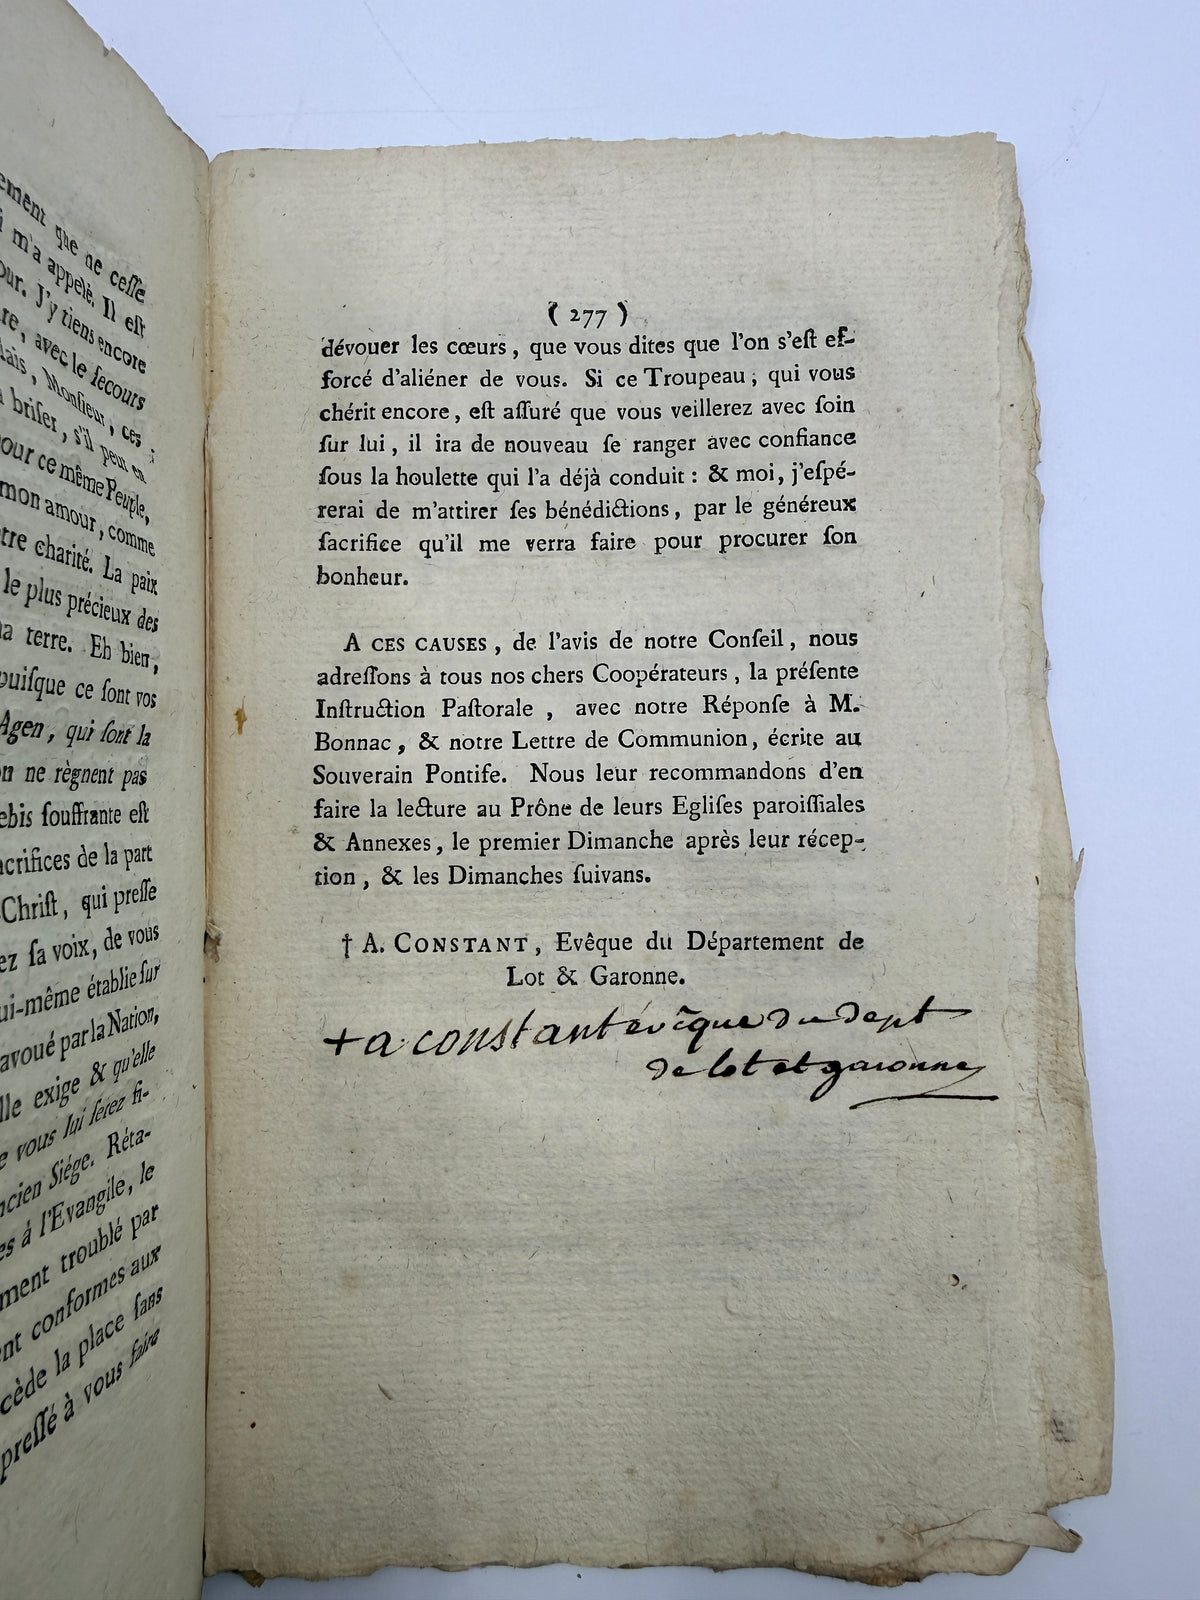 ement que ne ceſſe
m'a appelé. Il eſt
our. J'y tiens encore
re, avec le ſecours
Mais, Monſieur, ces
briſer, s'il peut en
our ce même Peuple,
mon amour, comme
tre charité. La paix
le plus précieux des
a terre. Eh bien,
puiſque ce ſont vos
Agen, qui ſont la
on ne règnent pas
ebis ſouffrante eſt
acrifices de la part
Chriſt, qui preſſe
ez ſa voix, de vous
ui-même établie ſur
avoué par la Nation,
lle exige & qu'elle
e vous lui ſerez fi-
ncien Siége. Réta-
es à l'Evangile, le
ment troublé par
nt conformes aux
cède la place ſans
preſſé à vous faire
( 277 )
dévouer les cœurs, que vous dites que l'on s'eſt ef-
forcé d'aliéner de vous. Si ce Troupeau, qui vous
chérit encore, eſt aſſuré que vous veillerez avec ſoin
ſur lui, il ira de nouveau ſe ranger avec confiance
ſous la houlette qui l'a déjà conduit : & moi, j'eſpé-
rerai de m'attirer ſes bénédictions, par le généreux
ſacrifice qu'il me verra faire pour procurer ſon
bonheur.
A CES CAUSES, de l'avis de notre Conſeil, nous
adreſſons à tous nos chers Coopérateurs, la préſente
Inſtruction Paſtorale, avec notre Réponſe à M.
Bonnac, & notre Lettre de Communion, écrite au
Souverain Pontife. Nous leur recommandons d'en
faire la lecture au Prône de leurs Egliſes paroiſſiales
& Annexes, le premier Dimanche après leur récep-
tion, & les Dimanches ſuivans.
† A. CONSTANT, Evêque du Département de
Lot & Garonne.
+ a constant évêque du dept
de lot et garonne